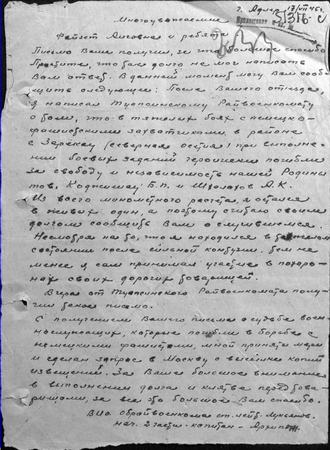 г. Адлер 17/VII 45 г.
Многоуважаемые
и ребята
Письмо Ваше получил, за что большое спасибо
Простите, что долго не мог написать
Вам ответ. В данный момент могу Вам сооб-
щить следующее: После Вашего отъезда,
я написал Туапсинскому Райвоенкомату
о том, что в тяжелых боях с немецко-
фашистскими захватчиками, в районе
(северная осетия) при выполне-
нии боевых заданий героически погибли
за свободу и независимость нашей Родины
Б.П. и А.К.
Из всего минометного расчета, я остался
в живых один, а поэтому считаю своим
долгом сообщить Вам о случившемся.
Несмотря на то, что я находился в
состоянии после контузии, тем не
менее я сам принимал участие в похоро-
нах своих дорогих товарищей.
Вчера от Туапсинского Райвоенкомата полу-
чил такое письмо.
С получением Вашего письма о судьбе воен-
нослужащих, которые погибли в борьбе с
немецкими фашистами, мной приняты меры
и сделан запрос в Москву о высылке копий
извещений. За Ваше большое внимание
в выполнении долга и клятвы перед това-
рищами, за все это большое Вам спасибо.
ст. лейт.
нач. 2 части - капитан -